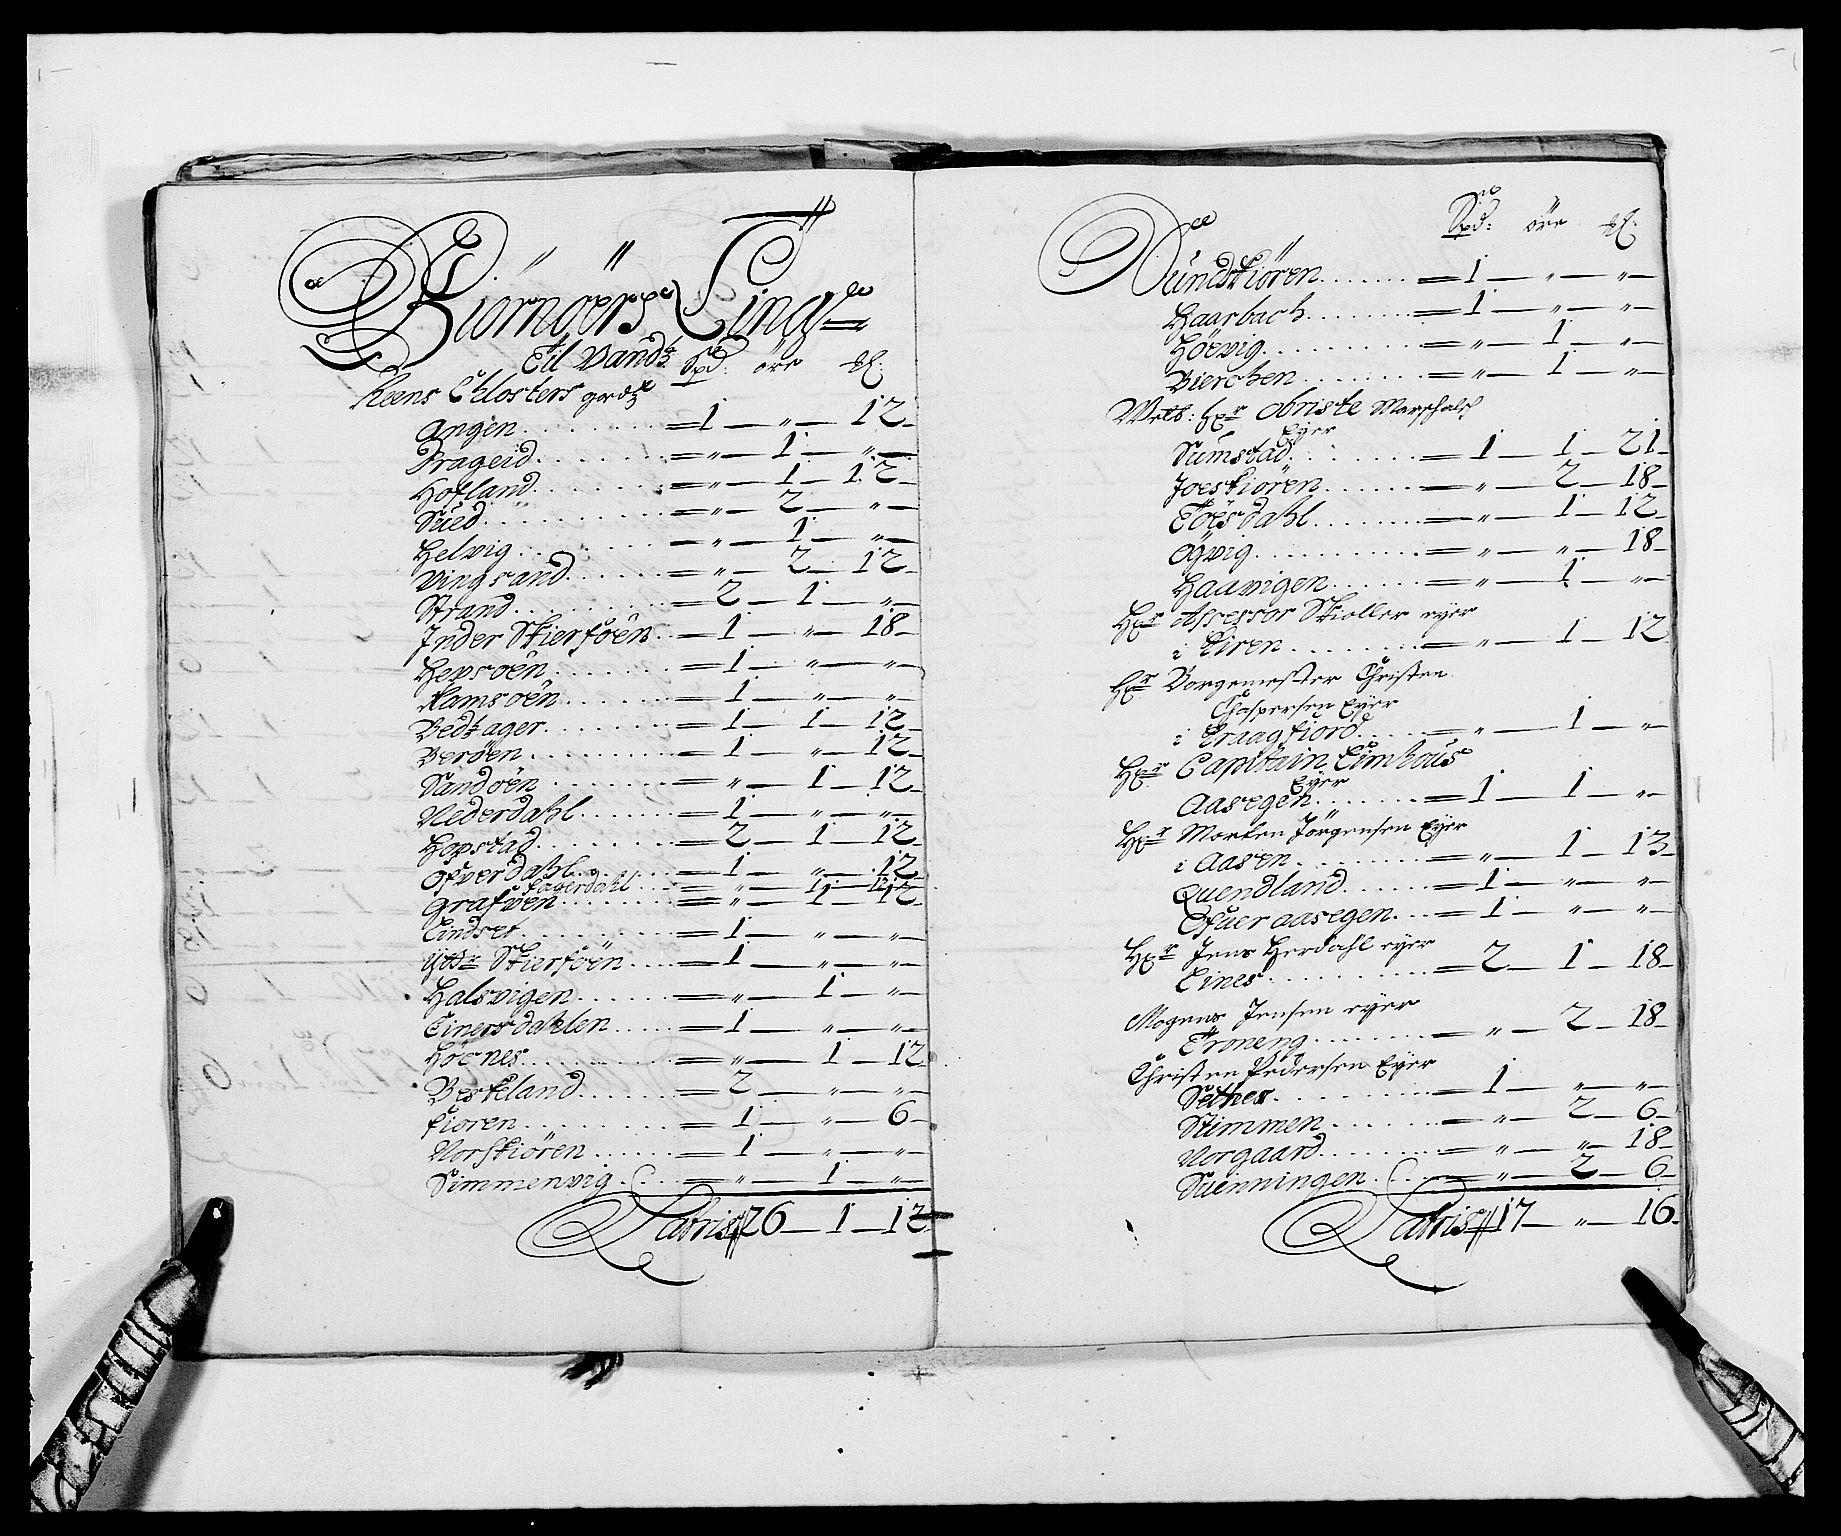 Biörnöers Ting
Til Vand
Spd: öre
Reens Closters godz
Angen . . . . = 1 — „ — 12 —
Drageid . . . . = „ — 1 — „ —
Hofland . . . . = „ — 1 — 12 —
Sued . . . . = „ — 2 — „ —
Helvig . . . . = „ — 1 — „ —
Vingsand . . . . = „ — 2 — 12 —
Strand . . . . = 2 — 1 — „ —
Inder Skierföen . . = 1 — „ — 18 —
Hepsoen . . . . = 1 — „ — „ —
Ramsoen . . . . = 1 — „ — „ —
Bedtager . . . . = 1 — 1 — 12 —
Beröen . . . . = 1 — „ — 12 —
Sandöen . . . . = „ — 1 — 12 —
Nederdahl . . . . = 1 — „ — „ —
Hopstad . . . . = 2 — 1 — 12 —
Ofverdahl . . . . = 1 — „ — 12 —
Fagerdahl . . . = „ — 1 — 12
Grafven . . . . = „ — 1 — 12 —
Lindset . . . . = 1 — „ — „ —
Ytter Skierföen . . . = 1 — „ — „ —
Halsvigen . . . . = „ — 1 — „ —
Einersdahlen . . . . = 1 — „ — „ —
Höenes . . . . = „ — 1 — 12
Beskeland . . . . = 2 — „ — „ —
Kioren . . . . = 1 — „ — 6 —
Norskiören . . . . = 1 — „ — „ —
Simmenvig . . . = „ — 1 — „ —
Latris 26 — 1 — 12
Spd: öre
Sundskiören . . . . = 1 — „ — „ —
Haarbach . . . . = 1 — „ — „ —
Höevig . . . . = „ — 1 — „ —
Bierchen . . . . = „ — 1 — „ —
Welb: Hr Obriste Marschalch
Eyer
Sumstad . . . . = 1 — 1 — 21 —
Joeskiören . . . . = „ — 2 — 18 —
Töesdahl . . . . = „ — 1 — 12
Ogvig . . . . = „ — „ — 18 —
Haavigen . . . . = „ — 1 — „ —
Hr Assessor Skioller eyer
i Eiren . . . . = „ — 1 — 12
Hr Borgemester Christen
Chaspersen Eyer
i Kraagfiord . . . = „ — 1 — „ —
Hr Capitain Limhous
Eyer
Aasegen . . . . = 1 — 1 — „ —
Hr Morten Jörgensen Eyer
i Aasen . . . . = „ — 1 — 13 —
Quendland . . . . = 1 — „ — „ —
Ofuer aasegen . . . = 1 — „ — „ —
Hr Jens Herdahl eyer
Eines . . . . = 2 — 1 — 18 —
Mogens Jensen eyer
Troneng . . . . = „ — 2 — 18 —
Christen Pedersen Eyer
Sethes . . . . = 1 — „ — „ —
Stimmen . . . . = „ — 2 — 6 —
Norgaard . . . . = „ — „ — 18 —
Suenningen . . . = „ — 2 — 6 —
Latris 17 — „ — 16 —